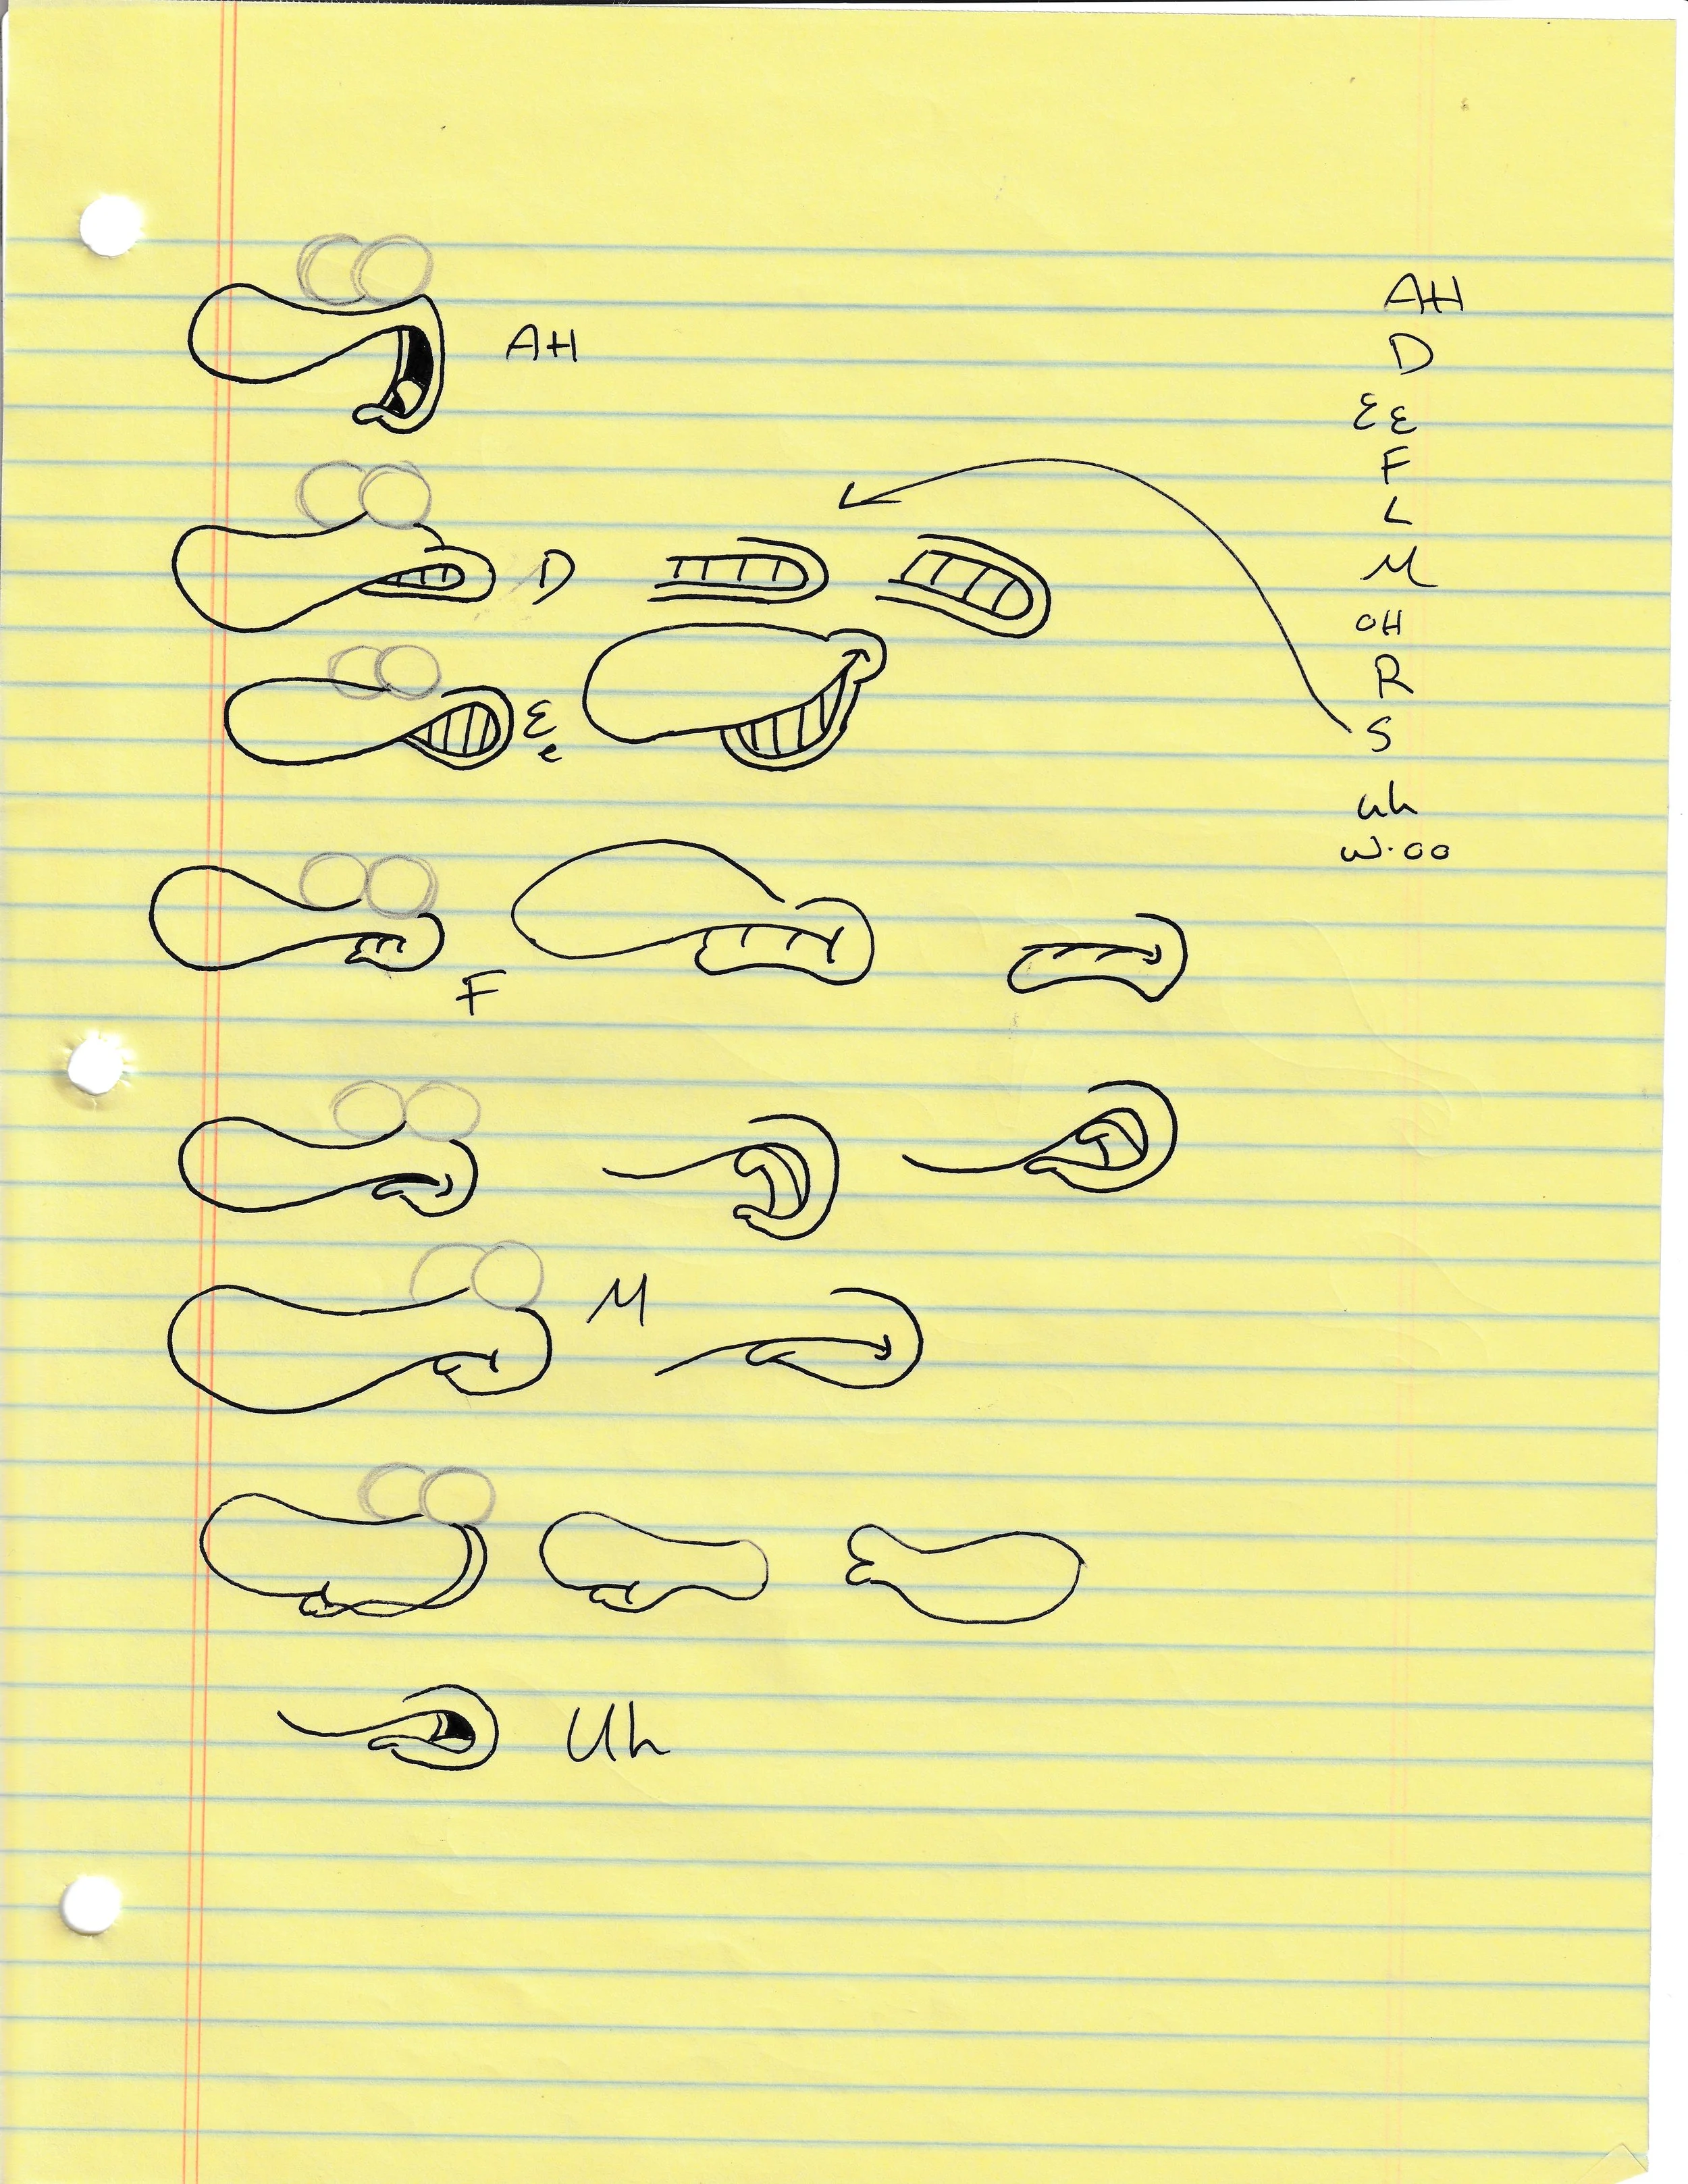 AH
D
Ee
F
M
Uh
AH
D
EE
F
L
M
OH
R
S
uh
W·OO